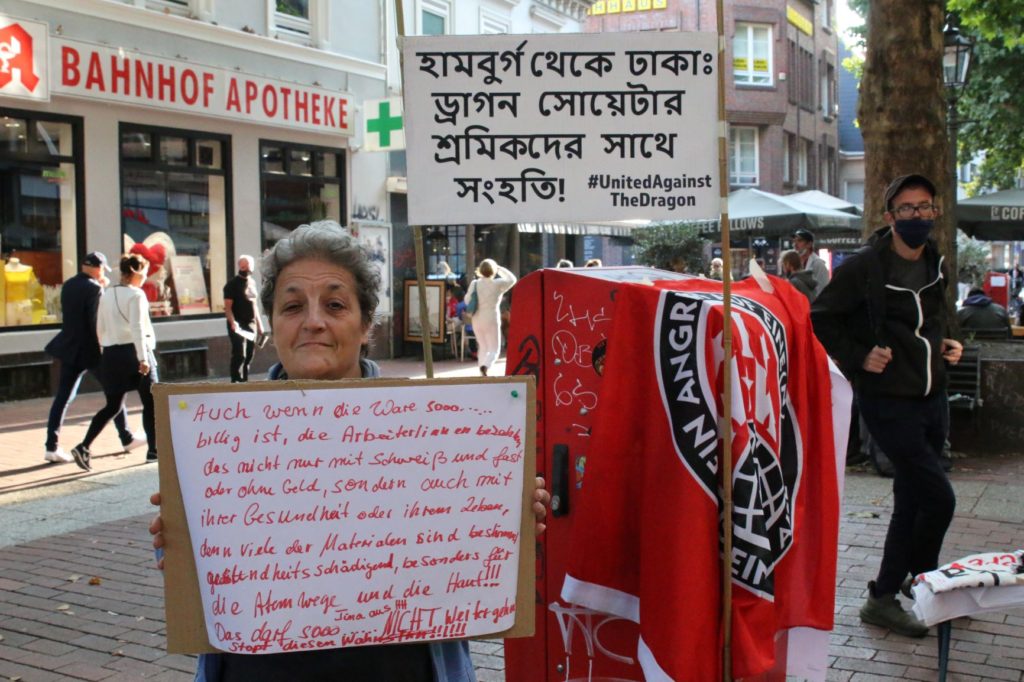 BAHNHOF APOTHEKE
হামবুর্গ থেকে ঢাকাঃ
ড্রাগন সোয়েটার
শ্রমিকদের সাথে
সংহতি! #UnitedAgainst
TheDragon
Auch wenn die Ware sooo.....
billig ist, die Arbeiterlinnen bezahlen
das nicht nur mit Schweiß und fast
oder ohne Geld, sondern auch mit
ihrer Gesundheit oder ihrem Leben,
denn viele der Materialen sind bestimmt
gesundheitsschädigend, besonders für
die Atemwege und die Haut!!!
Das darf sooo NICHT weitergehen
Stopt diesen Wahnsinn!!!!!!
EIN ANGRI
COFFEE FELLOWS